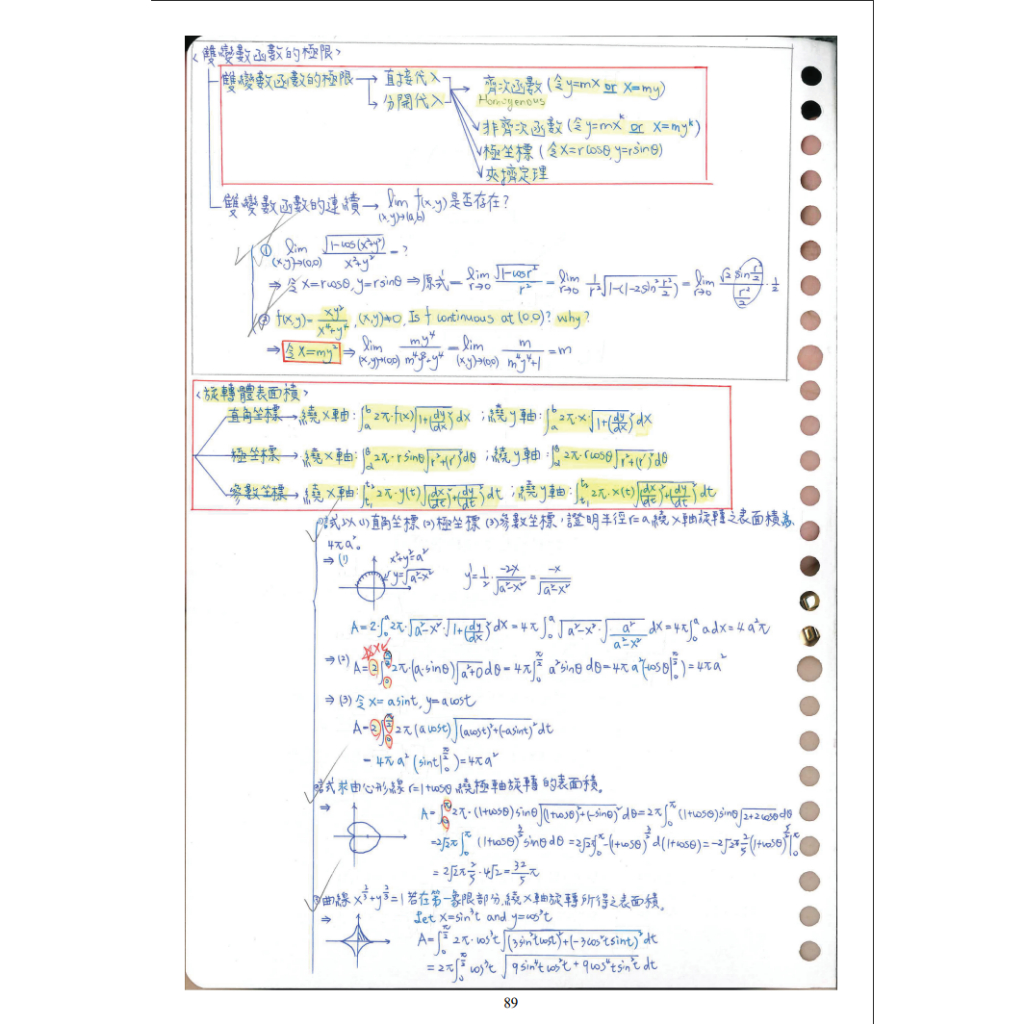 <雙變數函數的極限>
雙變數函數的極限 → 直接代入
→ 分開代入 → 齊次函數 (令y=mx or x=my)
Homogenous
非齊次函數 (令y=mx^k or x=my^k)
極坐標 (令x=rcosθ, y=rsinθ)
夾擠定理
雙變數函數的連續 → lim (x,y)→(a,b) f(x,y) 是否存在?
① lim (x,y)→(0,0) √(1-cos(x²+y²)) / (x²+y²) = ?
⇒ 令x=rcosθ, y=rsinθ ⇒ 原式 = lim r→0 √(1-cosr²) / r² = lim r→0 1/r² √(1-(1-2sin² r²/2)) = lim r→0 √2 sin(r²/2) / (r²/2) · 1/2
② f(x,y) = xy²/(x⁴+y⁴), (x,y)≠0, Is f continuous at (0,0)? why?
⇒ 令x=my² ⇒ lim (x,y)→(0,0) my⁴/(m⁴y⁸+y⁴) = lim (x,y)→(0,0) m/(m⁴y⁴+1) = m
<旋轉體表面積>
直角坐標 → 繞x軸: ∫_a^b 2π·f(x)√(1+(dy/dx)²) dx ; 繞y軸: ∫_a^b 2π·x·√(1+(dy/dx)²) dx
極坐標 → 繞x軸: ∫_α^β 2π·rsinθ√(r²+(r')²) dθ ; 繞y軸: ∫_α^β 2π·rcosθ√(r²+(r')²) dθ
參數坐標 → 繞x軸: ∫_t₁^t₂ 2π·y(t)√((dx/dt)²+(dy/dt)²) dt ; 繞y軸: ∫_t₁^t₂ 2π·x(t)√((dx/dt)²+(dy/dt)²) dt
試以(1)直角坐標(2)極坐標(3)參數坐標,證明半徑r=a繞x軸旋轉之表面積為
4πa²。
⇒ (1) x²+y²=a²
y=√(a²-x²) y'=1/2 · -2x/√(a²-x²) = -x/√(a²-x²)
A=2·∫_0^a 2π·√(a²-x²)·√(1+(dy/dx)²) dx = 4π∫_0^a √(a²-x²)·√(a²/(a²-x²)) dx = 4π∫_0^a a dx = 4a²π
⇒ (2) A=2∫_0^(π/2) 2π·(a·sinθ)√(a²+0) dθ = 4π∫_0^(π/2) a²sinθ dθ = 4πa²(-cosθ|_0^(π/2)) = 4πa²
⇒ (3) 令x=asint, y=acost
A=2∫_0^(π/2) 2π(acost)√((acost)²+(-asint)²) dt
= 4πa²(sint|_0^(π/2)) = 4πa²
試求由心形線r=1+cosθ繞極軸旋轉的表面積。
⇒ A=∫_0^π 2π·(1+cosθ)sinθ√((1+cosθ)²+(-sinθ)²) dθ = 2π∫_0^π (1+cosθ)sinθ√(2+2cosθ) dθ
=2√2π∫_0^π (1+cosθ)^(3/2) sinθ dθ = 2√2π∫_0^π -(1+cosθ)^(3/2) d(1+cosθ) = -2√2π 2/5 (1+cosθ)^(5/2)|_0^π
= 2√2π 2/5 · 4√2 = 32/5 π
曲線x^(2/3)+y^(2/3)=1若在第一象限部分,繞x軸旋轉所得之表面積。
⇒ Let x=sin³t and y=cos³t
A=∫_0^(π/2) 2π·cos³t√((3sin²tcost)²+(-3cos²tsint)²) dt
=2π∫_0^(π/2) cos³t √(9sin⁴tcos²t+9cos⁴tsin²t) dt
89